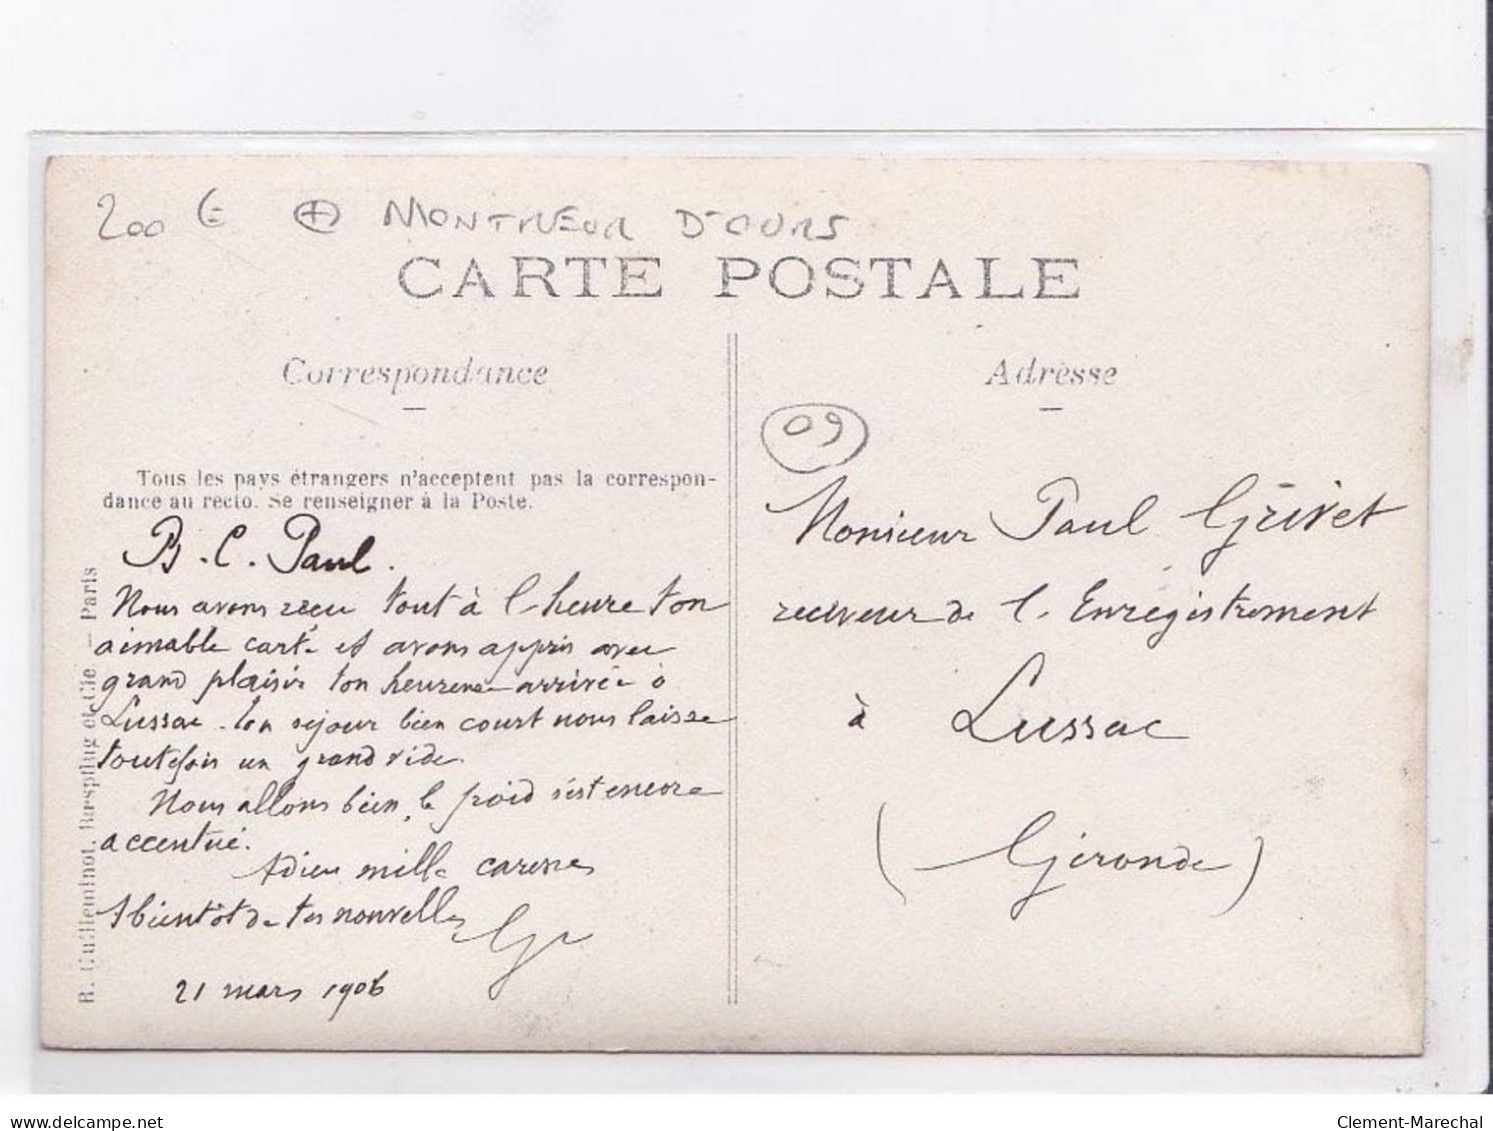 200 € ⊕ MONTREUR D'OURS
CARTE POSTALE
Correspondance
Tous les pays étrangers n'acceptent pas la correspon-
dance au recto. Se renseigner à la Poste.
B. C. Paul.
Nous avons reçu tout à l'heure ton
aimable carte et avons appris avec
grand plaisir ton heureuse arrivée à
Lussac. Ton séjour bien court nous laisse
toutefois un grand vide.
Nous allons bien, le froid s'est encore
accentué.
Adieu mille caresses
A bientôt de tes nouvelles
21 mars 1906
R. Guilleminot, Bœspflug et Cie — Paris
Adresse
09
Monsieur Paul Grivet
receveur de l'Enregistrement
à Lussac
(Gironde)
www.delcampe.net
Clement-Marechal